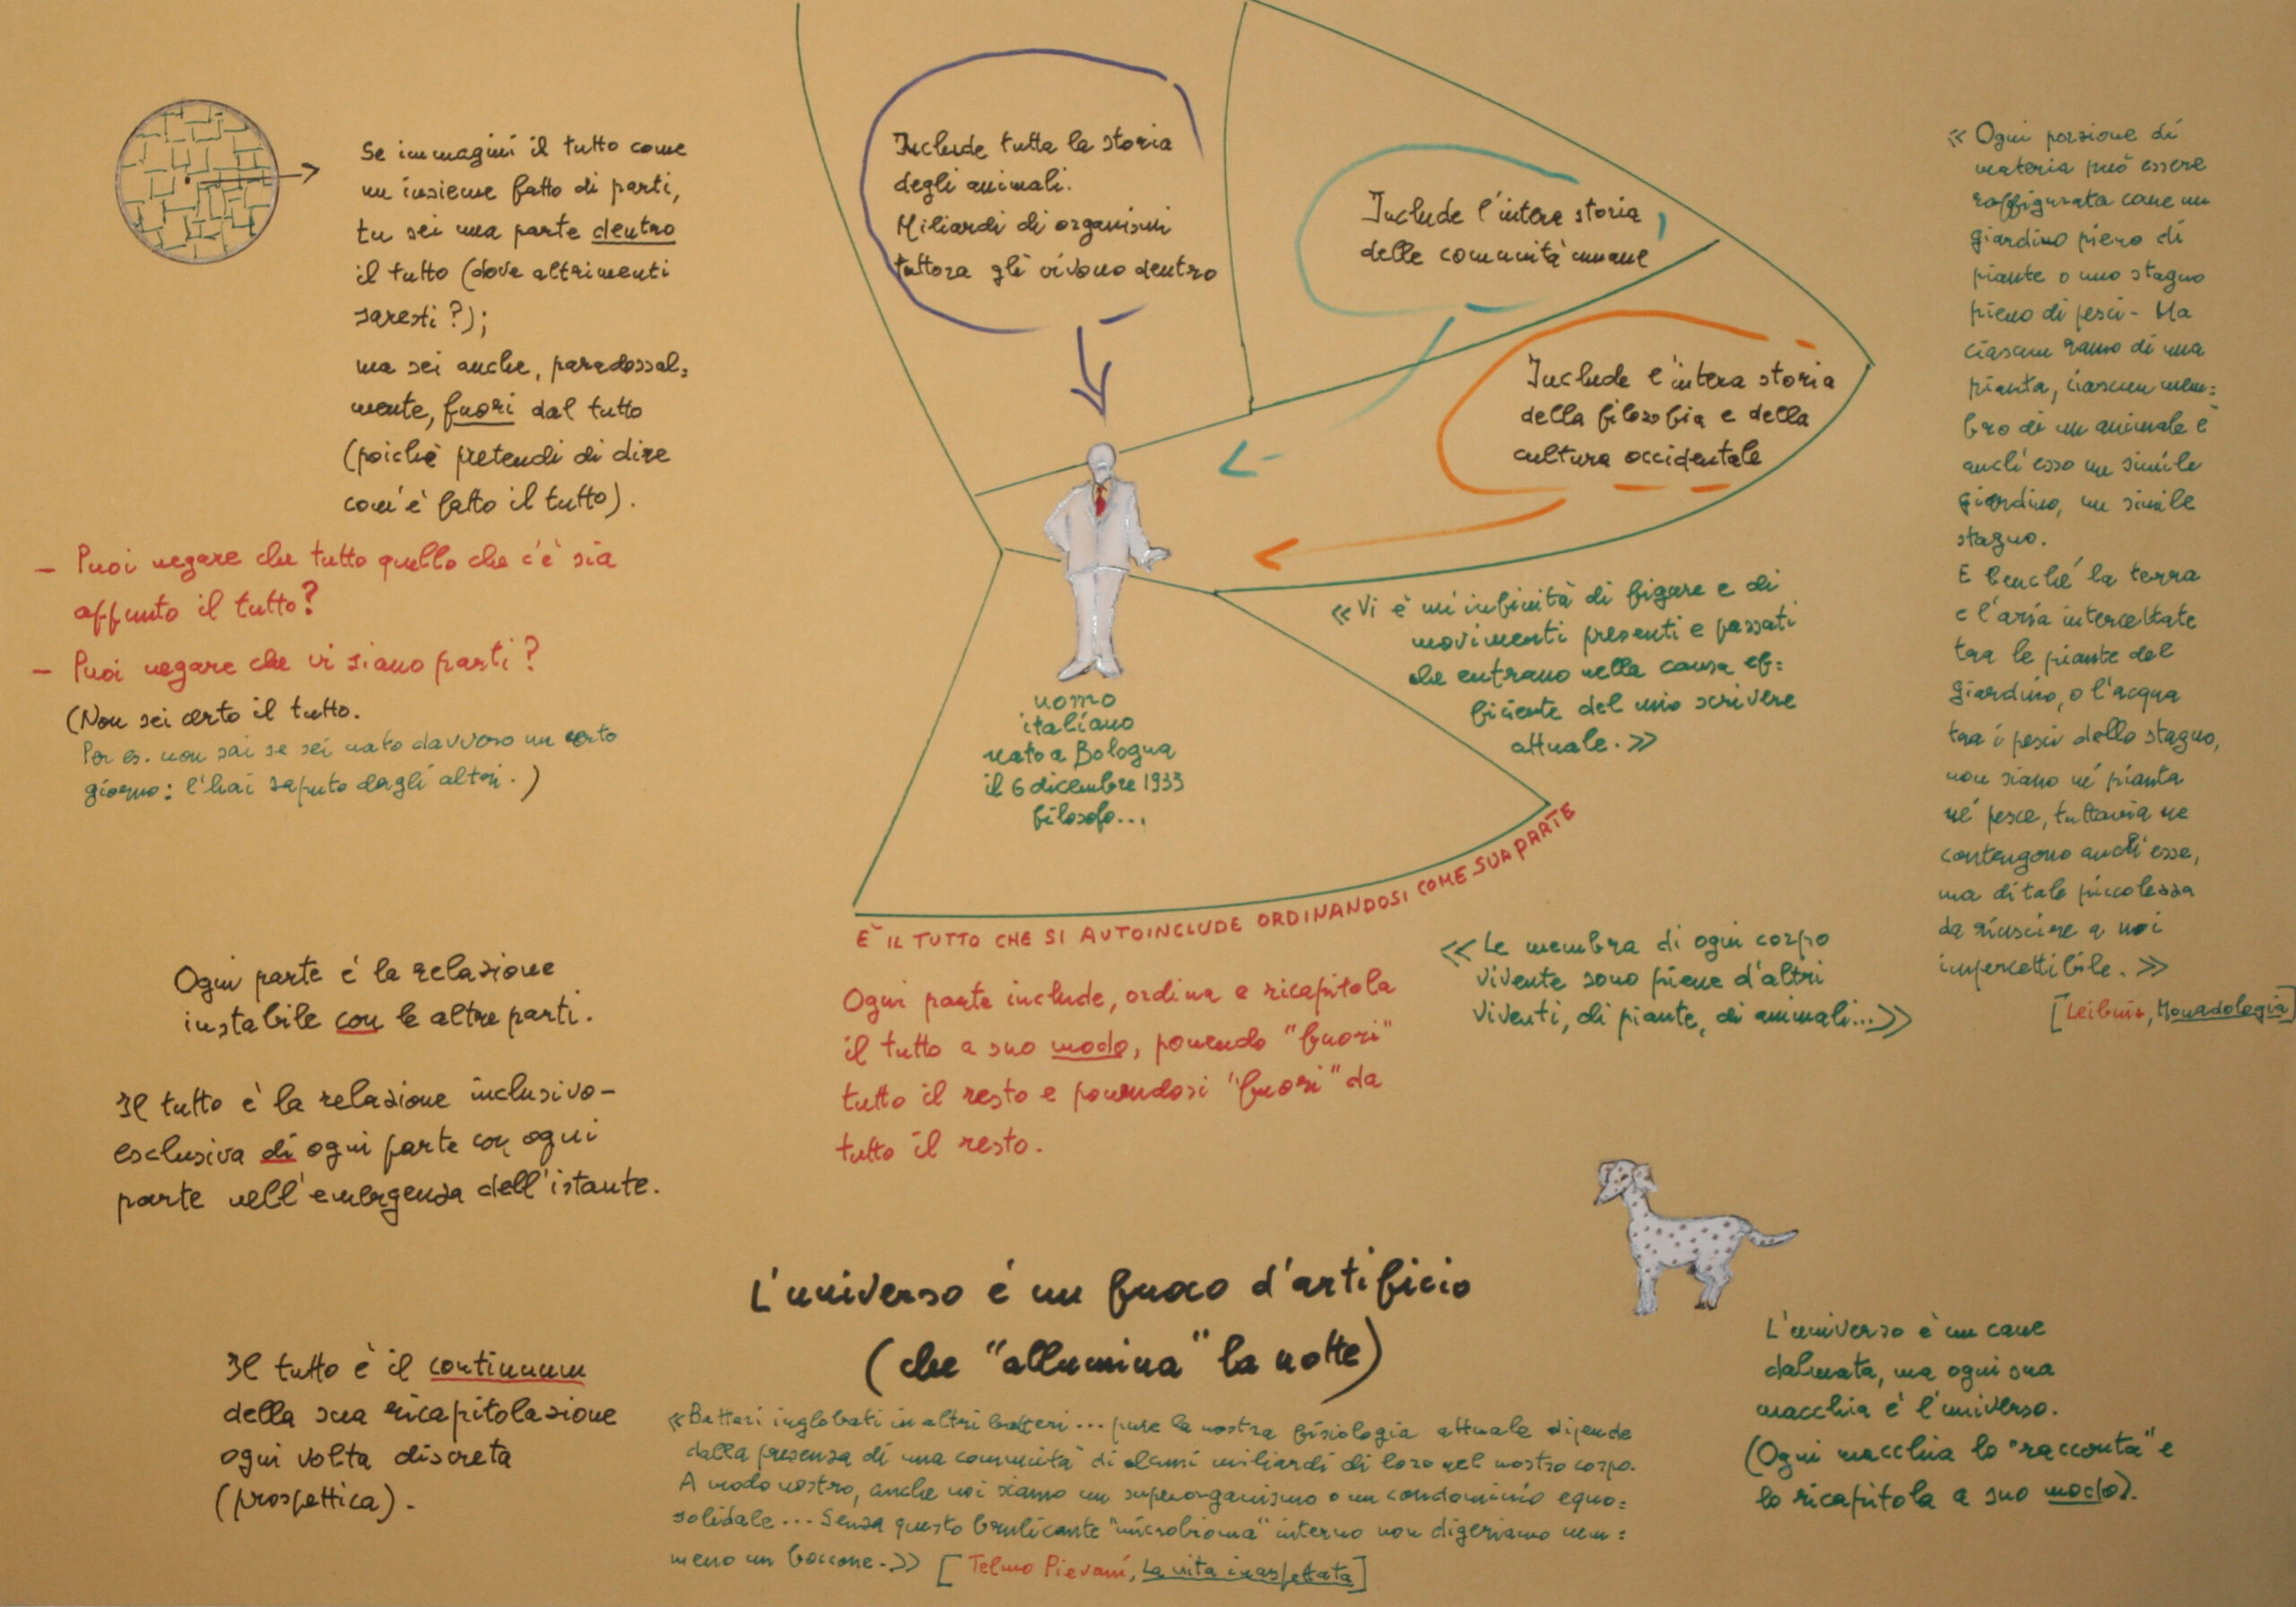 Se immagini il tutto come
un insieme fatto di parti,
tu sei una parte dentro
il tutto (dove altrimenti
saresti?);
ma sei anche, paradossal=
mente, fuori dal tutto
(poichè pretendi di dire
com'è fatto il tutto).
- Puoi negare che tutto quello che c'è sia
appunto il tutto?
- Puoi negare che vi siano parti?
(Non sei certo il tutto.
Per es. non sai se sei nato davvero un certo
giorno: l'hai saputo dagli altri.)
Ogni parte è la relazione
instabile con le altre parti.
Il tutto è la relazione inclusivo-
esclusiva di ogni parte con ogni
parte nell'emergenza dell'istante.
Il tutto è il continuum
della sua ricapitolazione
ogni volta discreta
(prospettica).
Include tutta la storia
degli animali.
Miliardi di organismi
tuttora gli vivono dentro
Include l'intera storia
delle comunità umane
Include l'intera storia
della filosofia e della
cultura occidentale
uomo
italiano
nato a Bologna
il 6 dicembre 1933
filosofo...
«Vi è un'infinità di figure e di
movimenti presenti e passati
che entrano nella causa ef=
ficiente del mio scrivere
attuale.»
È IL TUTTO CHE SI AUTOINCLUDE ORDINANDOSI COME SUA PARTE
Ogni parte include, ordina e ricapitola
il tutto a suo modo, ponendo "fuori"
tutto il resto e ponendosi "fuori" da
tutto il resto.
«Le membra di ogni corpo
vivente sono piene d'altri
viventi, di piante, di animali...»
«Ogni porzione di
materia può essere
raffigurata come un
giardino pieno di
piante o uno stagno
pieno di pesci- Ma
ciascun ramo di una
pianta, ciascun mem=
bro di un animale è
anch'esso un simile
giardino, un simile
stagno.
E benché la terra
e l'aria intercettate
tra le piante del
giardino, o l'acqua
tra i pesci dello stagno,
non siano né pianta
né pesce, tuttavia ne
contengono anch'esse,
ma di tale piccolezza
da riuscire a noi
impercettibile.»
[Leibniz, Monadologia]
L'universo è un fuoco d'artificio
(che "allumina" la notte)
«Batteri inglobati in altri batteri... pure la nostra fisiologia attuale dipende
dalla presenza di una comunità di alcuni miliardi di loro nel nostro corpo.
A modo nostro, anche noi siamo un superorganismo o un condominio equo=
solidale... Senza questo brulicante "microbioma" interno non digeriamo nem=
meno un boccone.» [Telmo Pievani, La vita inaspettata]
L'universo è un cane
dalmata, ma ogni sua
macchia è l'universo.
(Ogni macchia lo "racconta" e
lo ricapitola a suo modo).